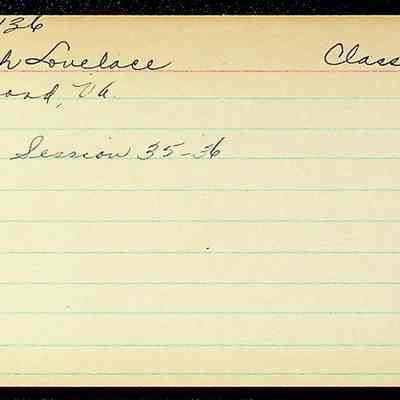 136
h Lovelace Class
ond, Va.
Session 35-36